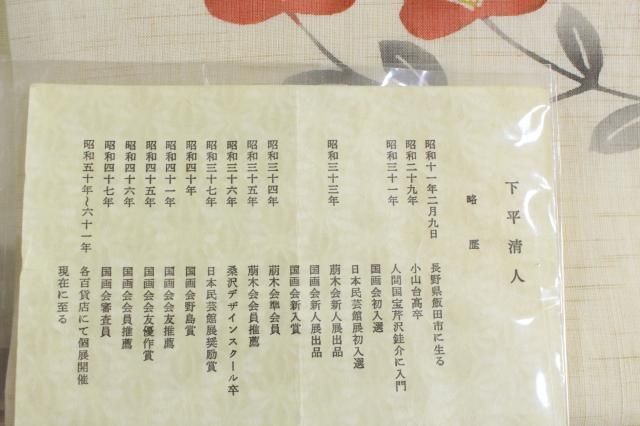 下平清人
略歴
昭和十一年二月九日 長野県飯田市に生る
昭和二十九年 小山台高卒
昭和三十一年 人間国宝芹沢銈介に入門
国画会初入選
日本民芸館展初入選
昭和三十三年 萠木会新人展出品
国画会新人展出品
国画会新人賞
昭和三十四年 萠木会準会員
昭和三十五年 萠木会会員推薦
昭和三十六年 桑沢デザインスクール卒
昭和三十七年 日本民芸館展奨励賞
昭和四十年 国画会野島賞
昭和四十一年 国画会会友推薦
昭和四十五年 国画会会友優作賞
昭和四十六年 国画会会員推薦
昭和四十七年 国画会審査員
昭和五十年～六十一年 各百貨店にて個展開催
現在に至る